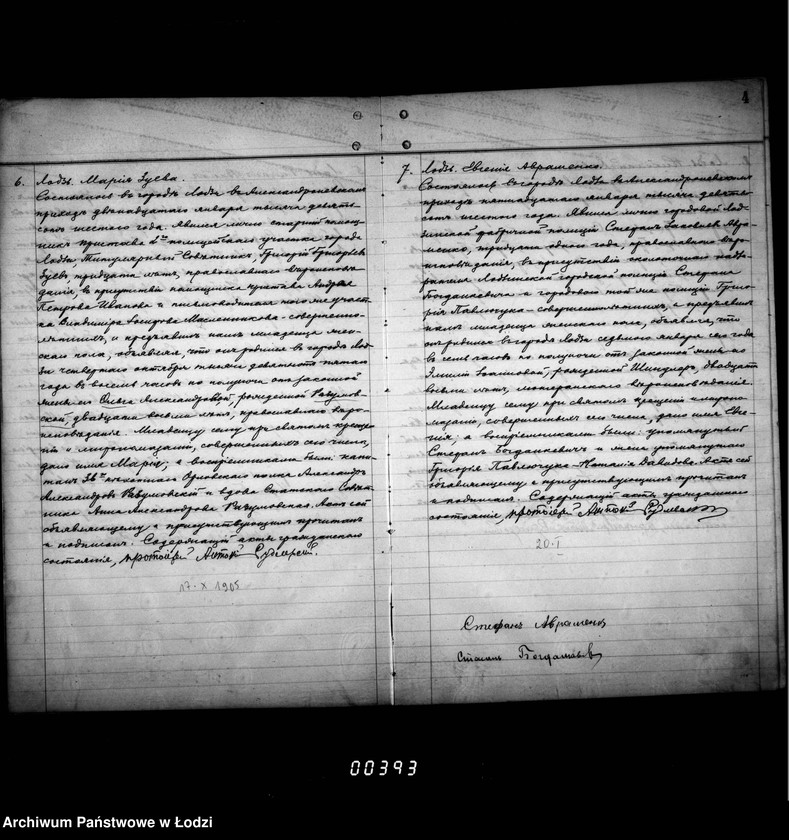 4
6. Лодзь. Марія Зуева.
Состоялось въ городѣ Лодзи въ Александроневскомъ
приходѣ двѣнадцатаго января тысяча девять-
сотъ шестого года. Явился лично старшій помощ-
никъ пристава 2го полицейскаго участка города
Лодзи, Титулярный Совѣтникъ, Григорій Григорьевъ
Зуевъ, тридцати лѣтъ, православнаго вѣроиспо-
данія, въ присутствіи помощника пристава Андрея
Петрова Иванова и письмоводителя того же участ-
ка Владиміра Іосифова Масленникова - совершенно-
лѣтнихъ, и предъявилъ намъ младенца жен-
скаго пола, объявляя, что онъ родился въ городѣ Лод-
зи четвертаго октября тысяча девятьсотъ пятаго
года въ восемь часовъ по полуночи отъ законной
жены его Ольги Александровой, рожденной
двадцати восьми лѣтъ, православнаго вѣро-
исповѣданія. Младенцу сему при святомъ креще-
ніи и мѵропомазаніи, совершенныхъ сего числа,
дано имя Марія, а воспріемниками были: капи-
танъ 36го пѣхотнаго Орловскаго полка Александръ
Александровъ и вдова Статскаго Совѣт-
ника Анна Александрова Актъ сей
объявляющему и присутствующимъ прочитанъ
и подписанъ. Содержащій акты гражданскаго
состоянія, протоіерей Антоній Рудлевскій.
17-X 1905
7. Лодзь. Евгенія Авраменко.
Состоялось въ городѣ Лодзи въ Александроневскомъ
приходѣ пятнадцатаго января тысяча девять-
сотъ шестого года. Явился лично городовой Лод-
зинской фабричной полиціи Стефанъ Яковлевъ Авра-
менко, тридцати одного года, православнаго вѣро-
исповѣданія, въ присутствіи околоточнаго надзи-
рателя Лодзинской городской полиціи Стефана
Богдановича и городового той же полиціи Григо-
рія Павлючука - совершеннолѣтнихъ, и предъявилъ
намъ младенца женскаго пола, объявляя, что
онъ родился въ городѣ Лодзи седьмого января сего года
въ семь часовъ по полуночи отъ законной жены его
Эмиліи рожденной Шиндлеръ, двадцати
восьми лѣтъ, лютеранскаго вѣроисповѣданія.
Младенцу сему при святомъ крещеніи и мѵропо-
мазаніи, совершенныхъ сего числа, дано имя Евге-
нія; а воспріемниками были: упомянутый
Стефанъ Богдановичъ и жена упомянутаго
Григорія Павлючука - Наталія Давидова. Актъ сей
объявляющему и присутствующимъ прочитанъ
и подписанъ. Содержащій акты гражданскаго
состоянія, протоіерей Антоній Рудлевскій
20-I
Стефанъ Авраменко
Стефанъ Богдановичъ
00393
Archiwum Państwowe w Łodzi